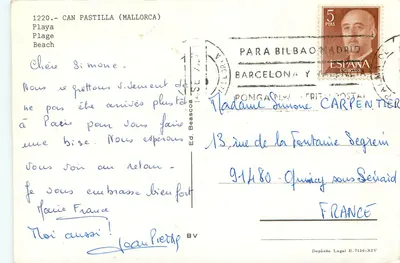 1220.- CAN PASTILLA (MALLORCA)
Playa
Plage
Beach
Chère Simone.
Nous regrettons vivement de
ne pas être arrivés plus tôt
à Paris pour vous faire
une bise. Nous espérons
vous voir au retour.
Je vous embrasse bien fort
Marie France
Moi aussi!
Jean Pierre
Ed. Beascoa
BV
5
PTAS
ESPAÑA
PARA BILBAO MADRID
BARCELONA Y
PONGA
Madame Simone CARPENTIER
13, rue de la Fontaine
91480 - Quincy sous Sénart
FRANCE
Depósito Legal B.